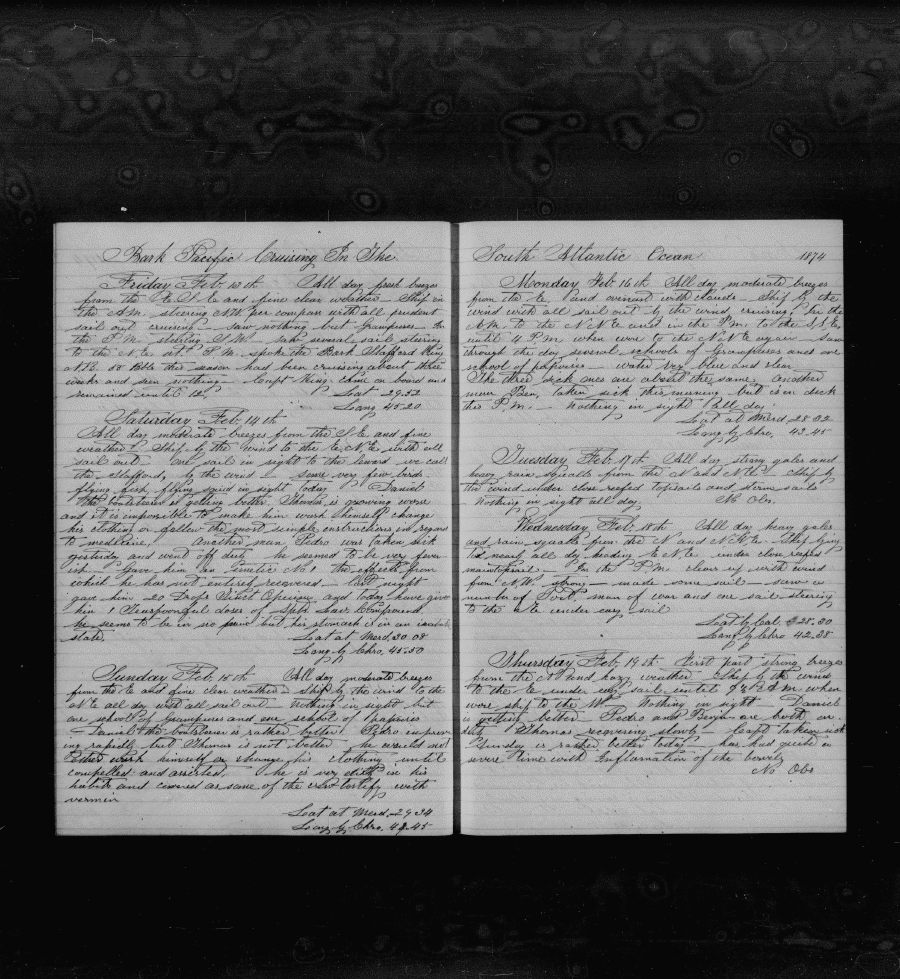 Bark Pacific Cruising In The
Friday Feb 13th All day fresh breezes
from the E.S.E and fine clear weather - Ship in
the A.M. steering NW per compass with all prudent
sail out cruising - saw nothing but Grampuses - In
the P.M. steering S.W. saw several sail steering
to the N.E. at P.M. spoke the Bark Stafford King
N.B. 58 Bbls this season had been cruising about three
weeks and seen nothing - Capt King came on board and
remained until 12. Lat 29.52
Long 45.20
Saturday Feb 14th
All day moderate breezes from the S.E and fine
weather Ship by the wind to the E.N.E with all
sail out one sail in sight to the leward we call
the Stafford, by the wind - some very few birds
flying fish flying squid in sight today Daniel
the boatsteerer is getting better Thomas is growing worse
and it is impossible to make him wash himself change
his clothing or follow the most simple instructions in regard
to medicine, Another man Pedro was taken sick
yesterday and went off duty he seemed to be very fever
ish Gave him an Emetic No 1 the effects from
which he has not entirely recovered - last night
gave him 20 Drops Tinct Opium and today I have given
him 1 Teaspoonful doses of Spts Lav Compound
he seems to be in no pain but his stomach is in an
state. Lat at Merd. 30.08
Long by Chro. 45.50
Sunday Feb 15th All day moderate breezes
from the E and fine clear weather - Ship by the wind to the
N.E all day with all sail out Nothing in sight but
one school of Grampuses and one school of porpoises
- Daniel the boatsteerer is rather better Pedro improv
ing rapidly but Thomas is not better he would not
either wash himself or change his clothing until
compelled and assisted. he is very filthy in his
habits and covered as some of the crew testify with
vermin
Lat at Merd. 29.34
Long by Chro. 45
South Atlantic Ocean 1874
Monday Feb 16th All day moderate breezes
from the E and overcast with clouds - Ship by the
wind with all sail out by the wind cruising, In the
A.M. to the N.N.E and in the P.M. to the S.S.E.
until 4 P.M. when wore to the N.N.E again - saw
through the day several schools of Grampuses and one
school of porpoises - water very blue and clear
The three sick ones are about the same. Another
man Ben, taken sick this morning but is on deck
this P.M. - Nothing in sight all day
Lat at Merd 28.02
Long by Chro. 43.45
Tuesday Feb 17th All day strong gales and
heavy rain squalls from the N and N.E. - Ship by
the wind under close reefed topsails and storm sails
Nothing in sight all day. No Obs.
Wednesday Feb 18th All day heavy gales
and rain squalls from the N and N.N.E. - Ship lying
to nearly all day heading E.N.E. under close reefed
maintopsail - In the P.M. clear up with wind
from N.W. strong - made some sail - saw a
number of Port man of war and one sail steering
to the N.E under easy sail
Lat by Cal. 28.30
Long by Chro 42.38
Thursday Feb 19th First part strong breezes
from the N and hazy weather - Ship by the wind
to the E under easy sail until 9½ A.M when
wore ship to the W - Nothing in sight Daniel
is getting better Pedro and Benja are both on
duty Thomas recovering slowly - Capt taken sick
Sunday is rather better today has had quite a
severe time with Inflamation of the bowels
No Obs